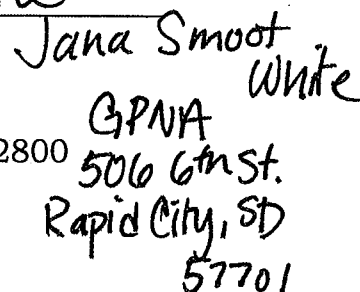 Jana Smoot
White
GPNA
2800 506 6th St.
Rapid City, SD
57701